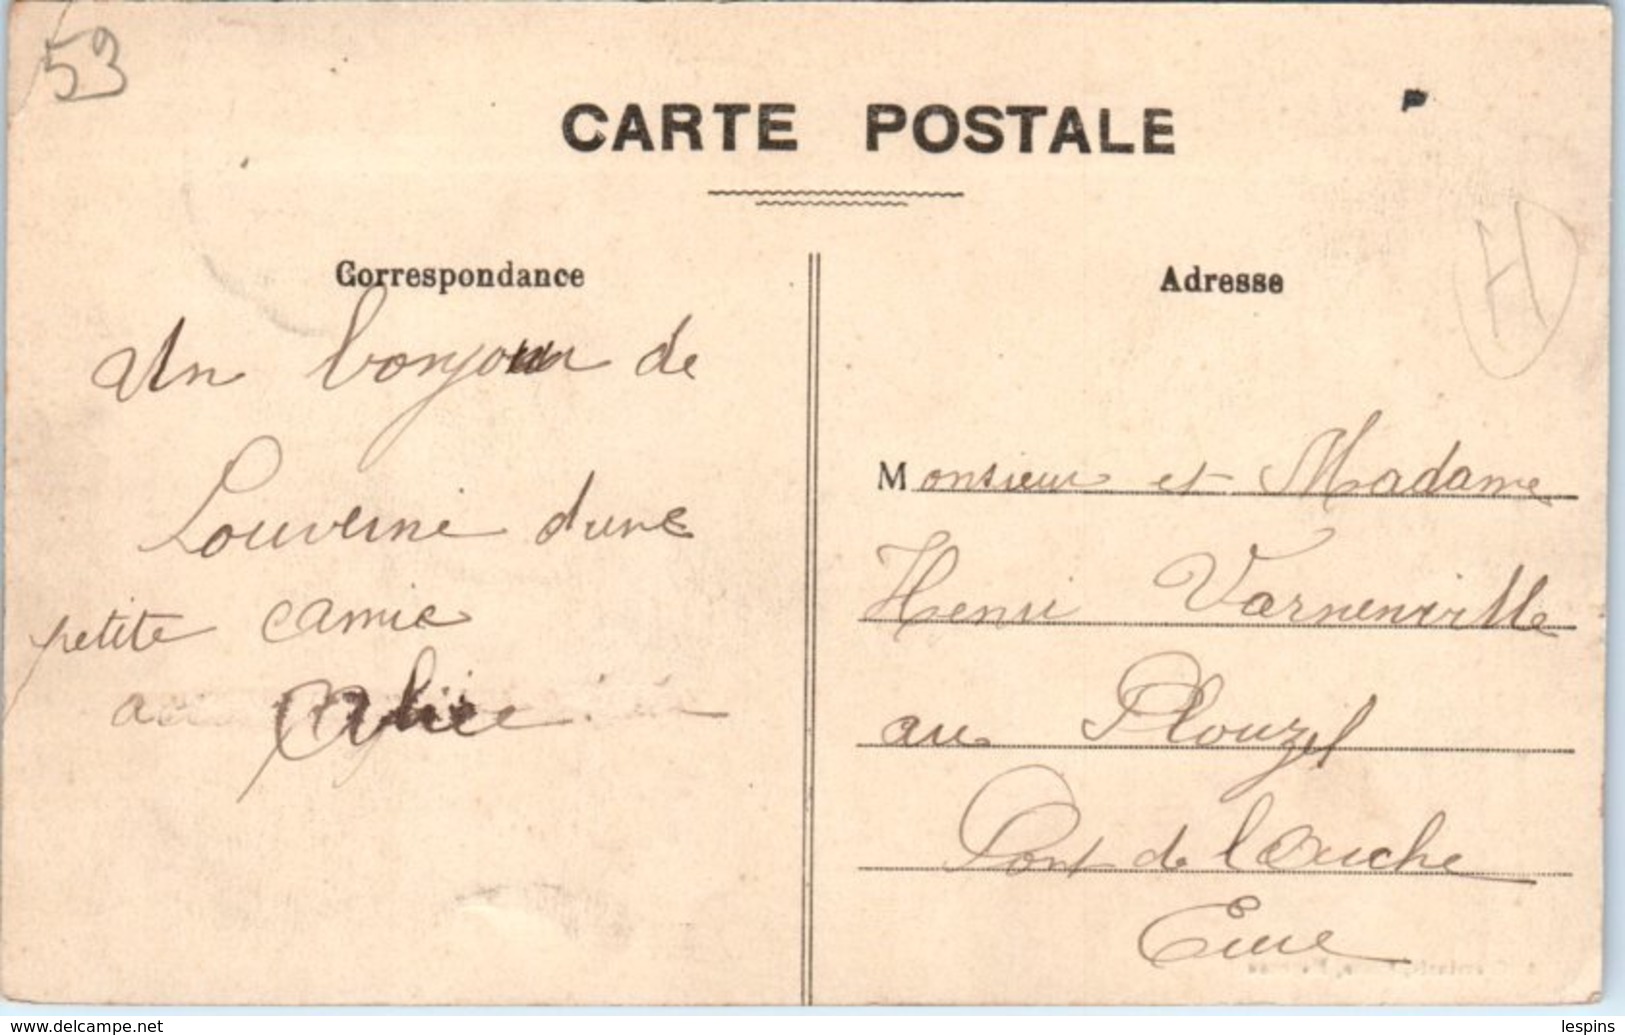 53
CARTE POSTALE
Correspondance
Un bonjour de
Louverné dune
petite camie
Alice
Adresse
H
Monsieur et Madame
Henri Varnenville
au Plouzel
Pont de l'Ouche
Eure
www.delcampe.net
lespins